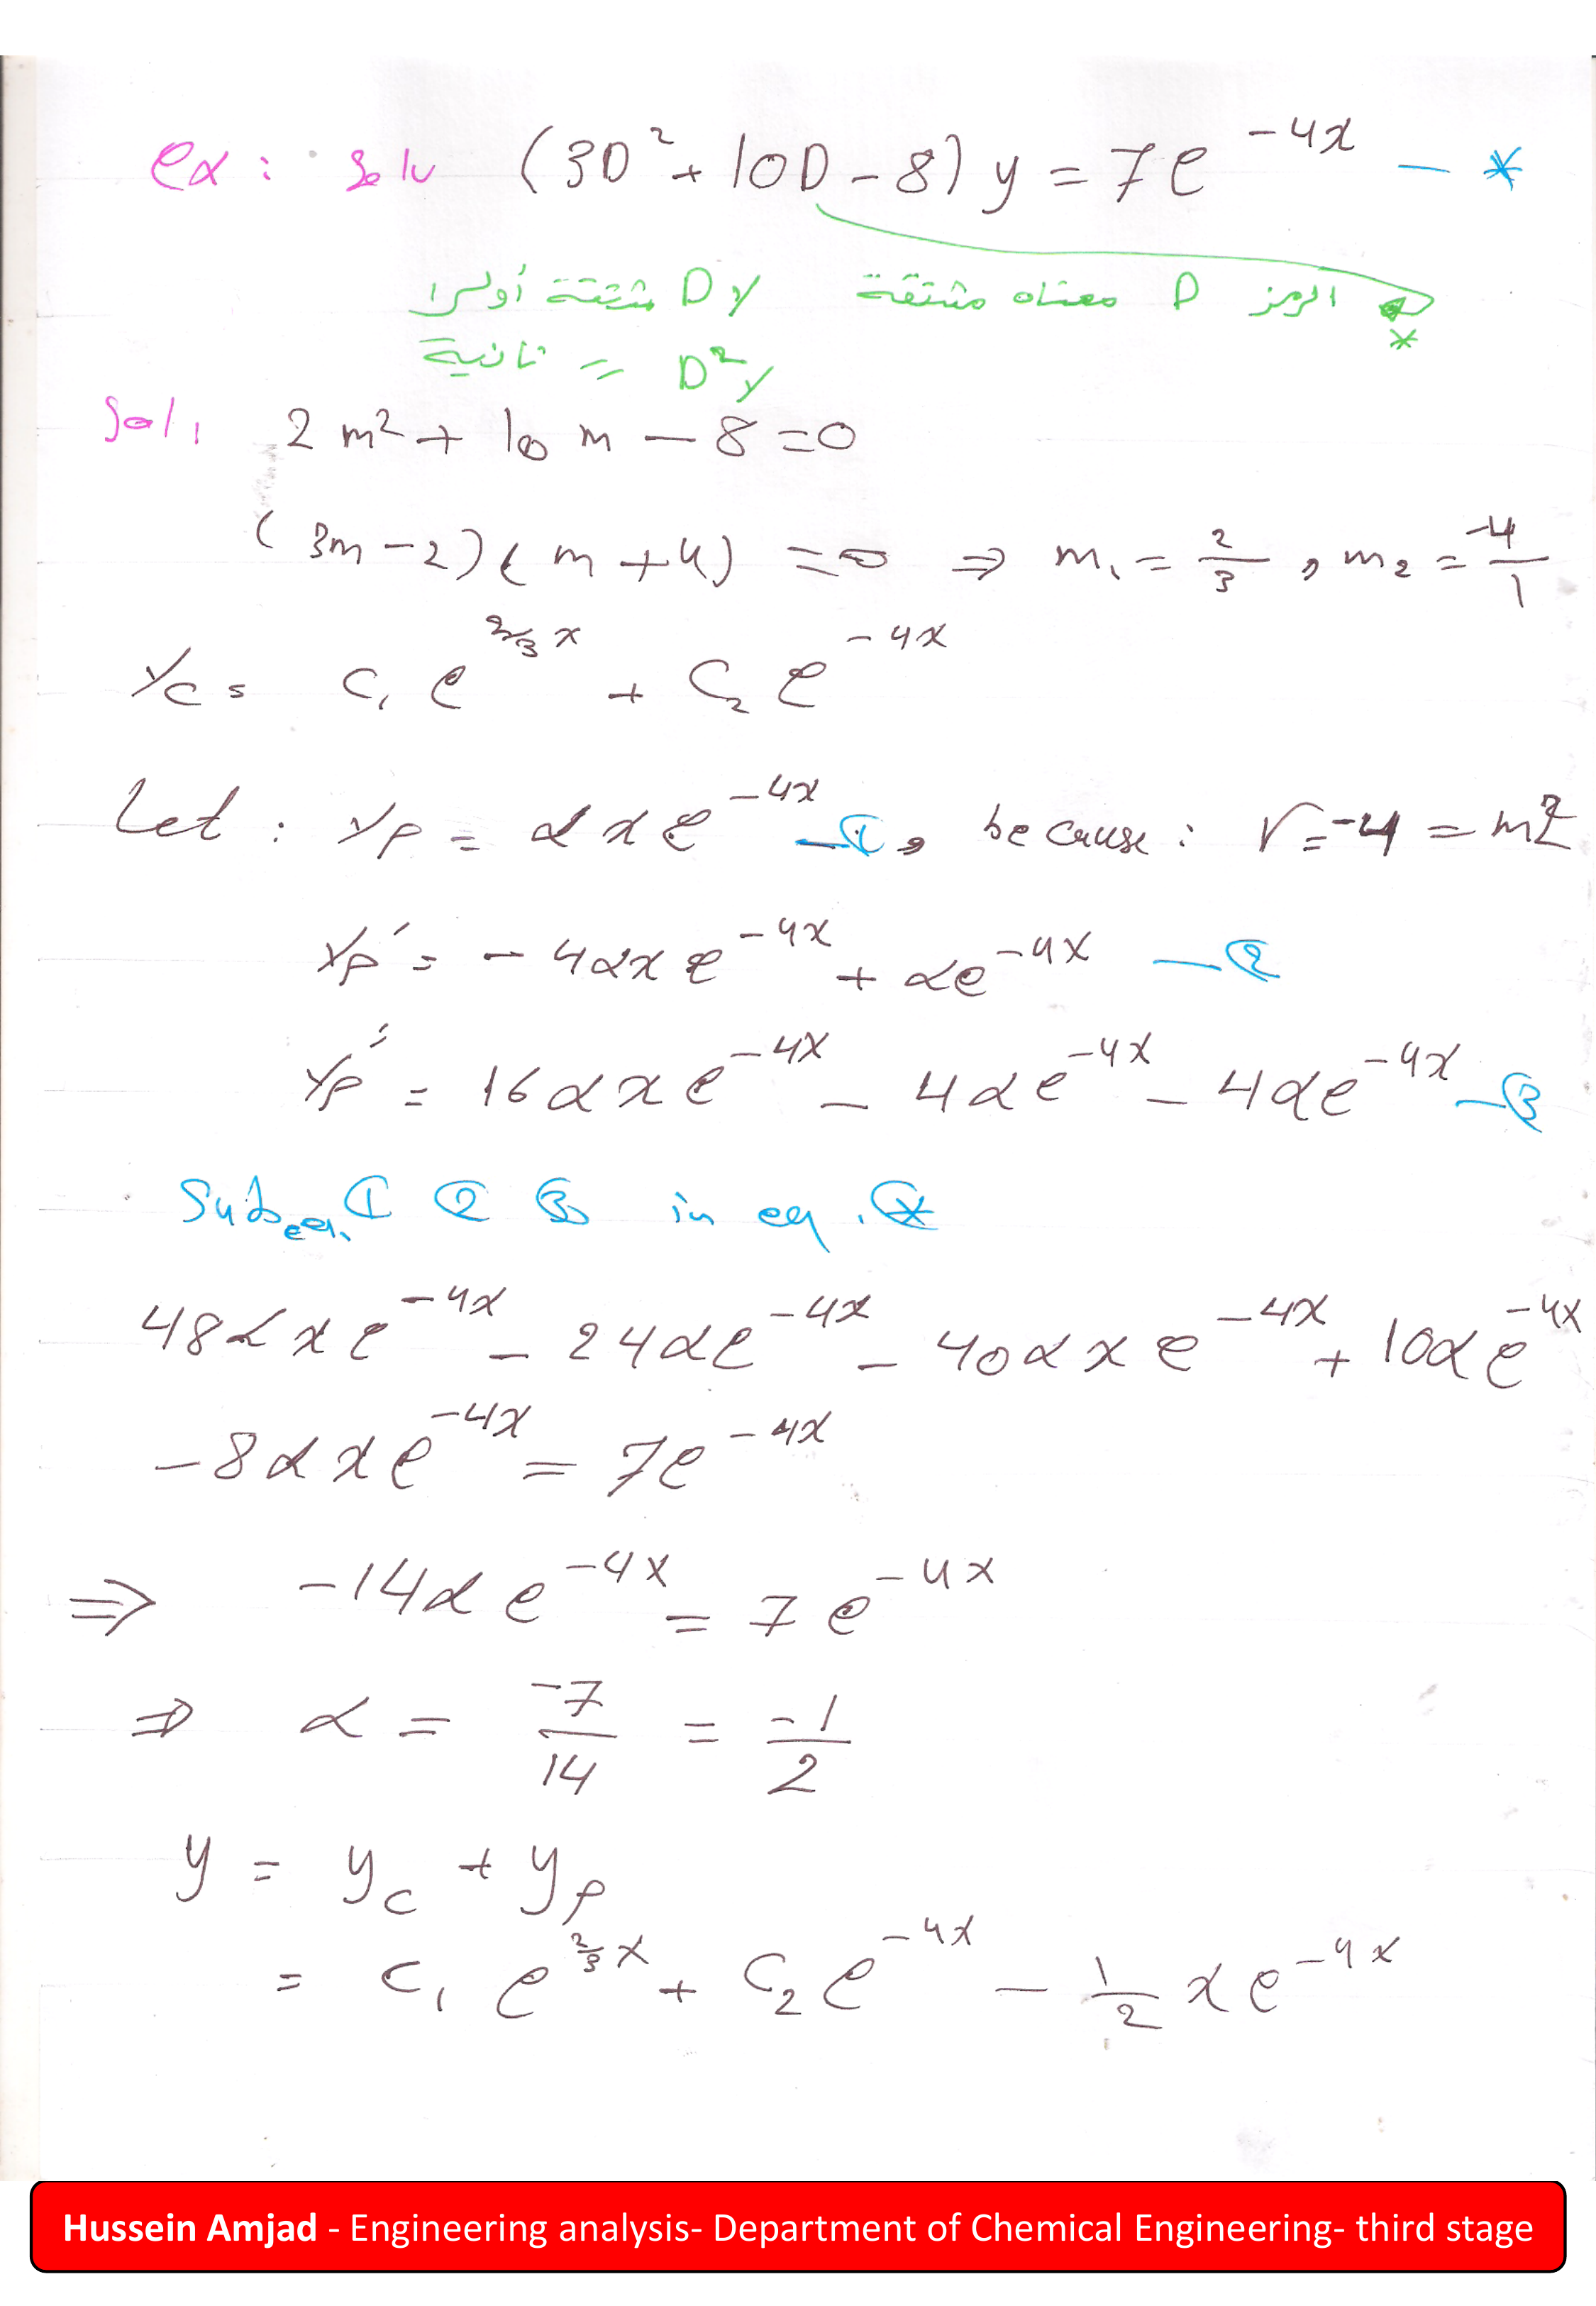 ex: Solv (3D² + 10D - 8) y = 7e^{-4x} — *
* الرمز D معناه مشتقة Dy مشتقة أولى
D²y = ثانية
Sol, 2m² + 10m - 8 = 0
(3m - 2)(m + 4) = 0 ⇒ m₁ = 2/3, m₂ = -4/1
yc = C₁ e^{2/3 x} + C₂ e^{-4x}
Let: yp = αxe^{-4x} — ①, because: r = -4 = m2
yp′ = -4αxe^{-4x} + αe^{-4x} — ②
yp″ = 16αxe^{-4x} - 4αe^{-4x} - 4αe^{-4x} — ③
Sub eq. ① ② ③ in eq. ⊛
48αxe^{-4x} - 24αe^{-4x} - 40αxe^{-4x} + 10αe^{-4x}
-8αxe^{-4x} = 7e^{-4x}
⇒ -14αe^{-4x} = 7e^{-4x}
⇒ α = -7/14 = -1/2
y = yc + yp
= C₁ e^{2/3 x} + C₂ e^{-4x} - 1/2 xe^{-4x}
Hussein Amjad - Engineering analysis- Department of Chemical Engineering- third stage